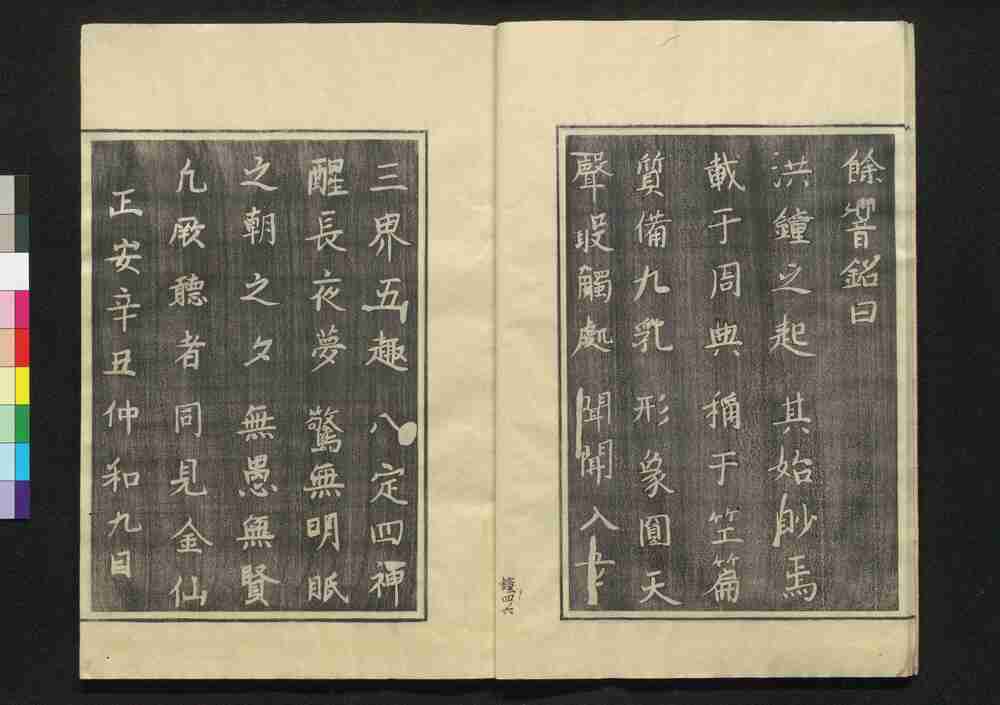 餘響銘曰
洪鐘之起其始眇焉
載于周典稱于竺篇
質備九乳形象圓天
聲叚觸處聞聞入
三界五趣八定四禅
醒長夜夢驚無明眠
之朝之夕無愚無賢
凢厥聽者同見金仙
正安辛丑仲和九日
鐘四ノ六